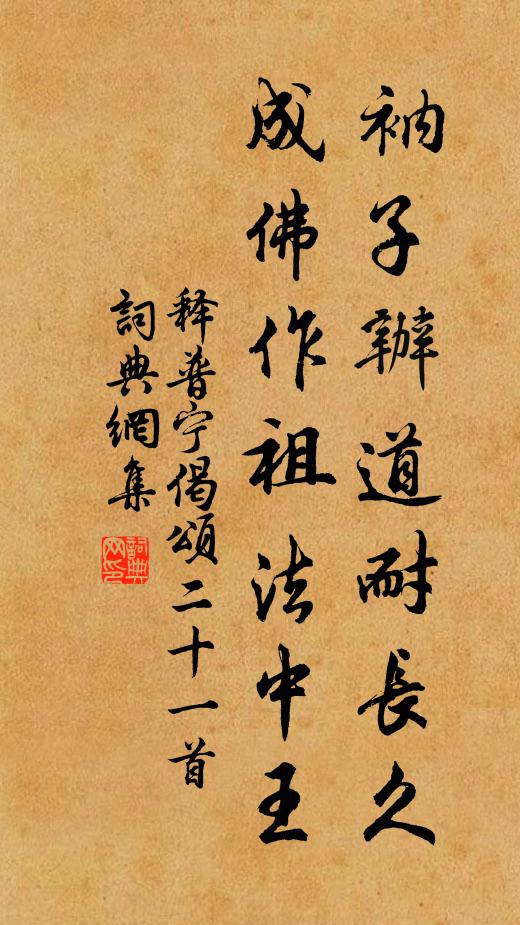 衲子辦道耐長久
成佛作祖法中王
释普宁偈頌二十一首
詞典網集
詞典
网印